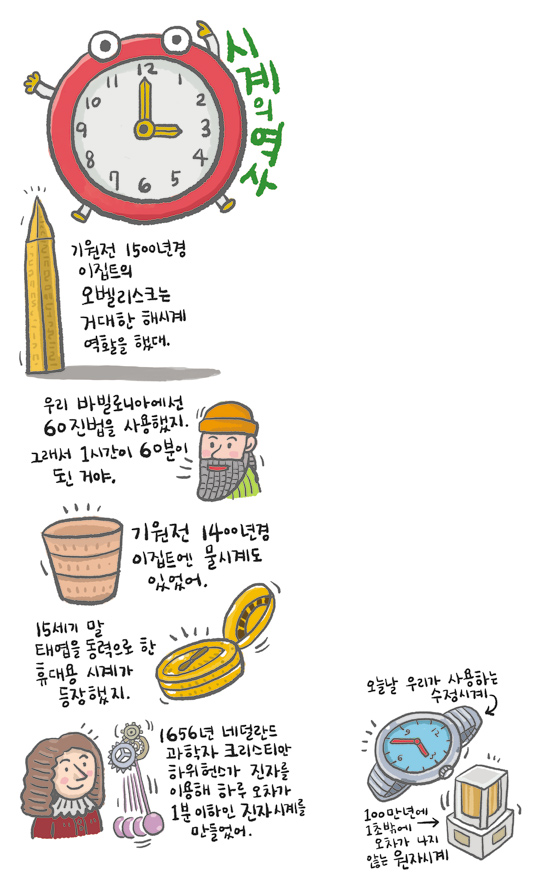 시계의 역사
12
11
1
10
2
9
3
8
4
7
6
5
기원전 1500년경
이집트의
오벨리스크는
거대한 해시계
역할을 했대.
우리 바빌로니아에선
60진법을 사용했지.
그래서 1시간이 60분이
된 거야.
기원전 1400년경
이집트엔 물시계도
있었어.
15세기 말
태엽을 동력으로 한
휴대용 시계가
등장했지.
1656년 네덜란드
과학자 크리스티안
하위헌스가 진자를
이용해 하루 오차가
1분 이하인 진자시계를
만들었어.
오늘날 우리가 사용하는
수정시계
100만년에
1초밖에
오차가 나지
않는 원자시계